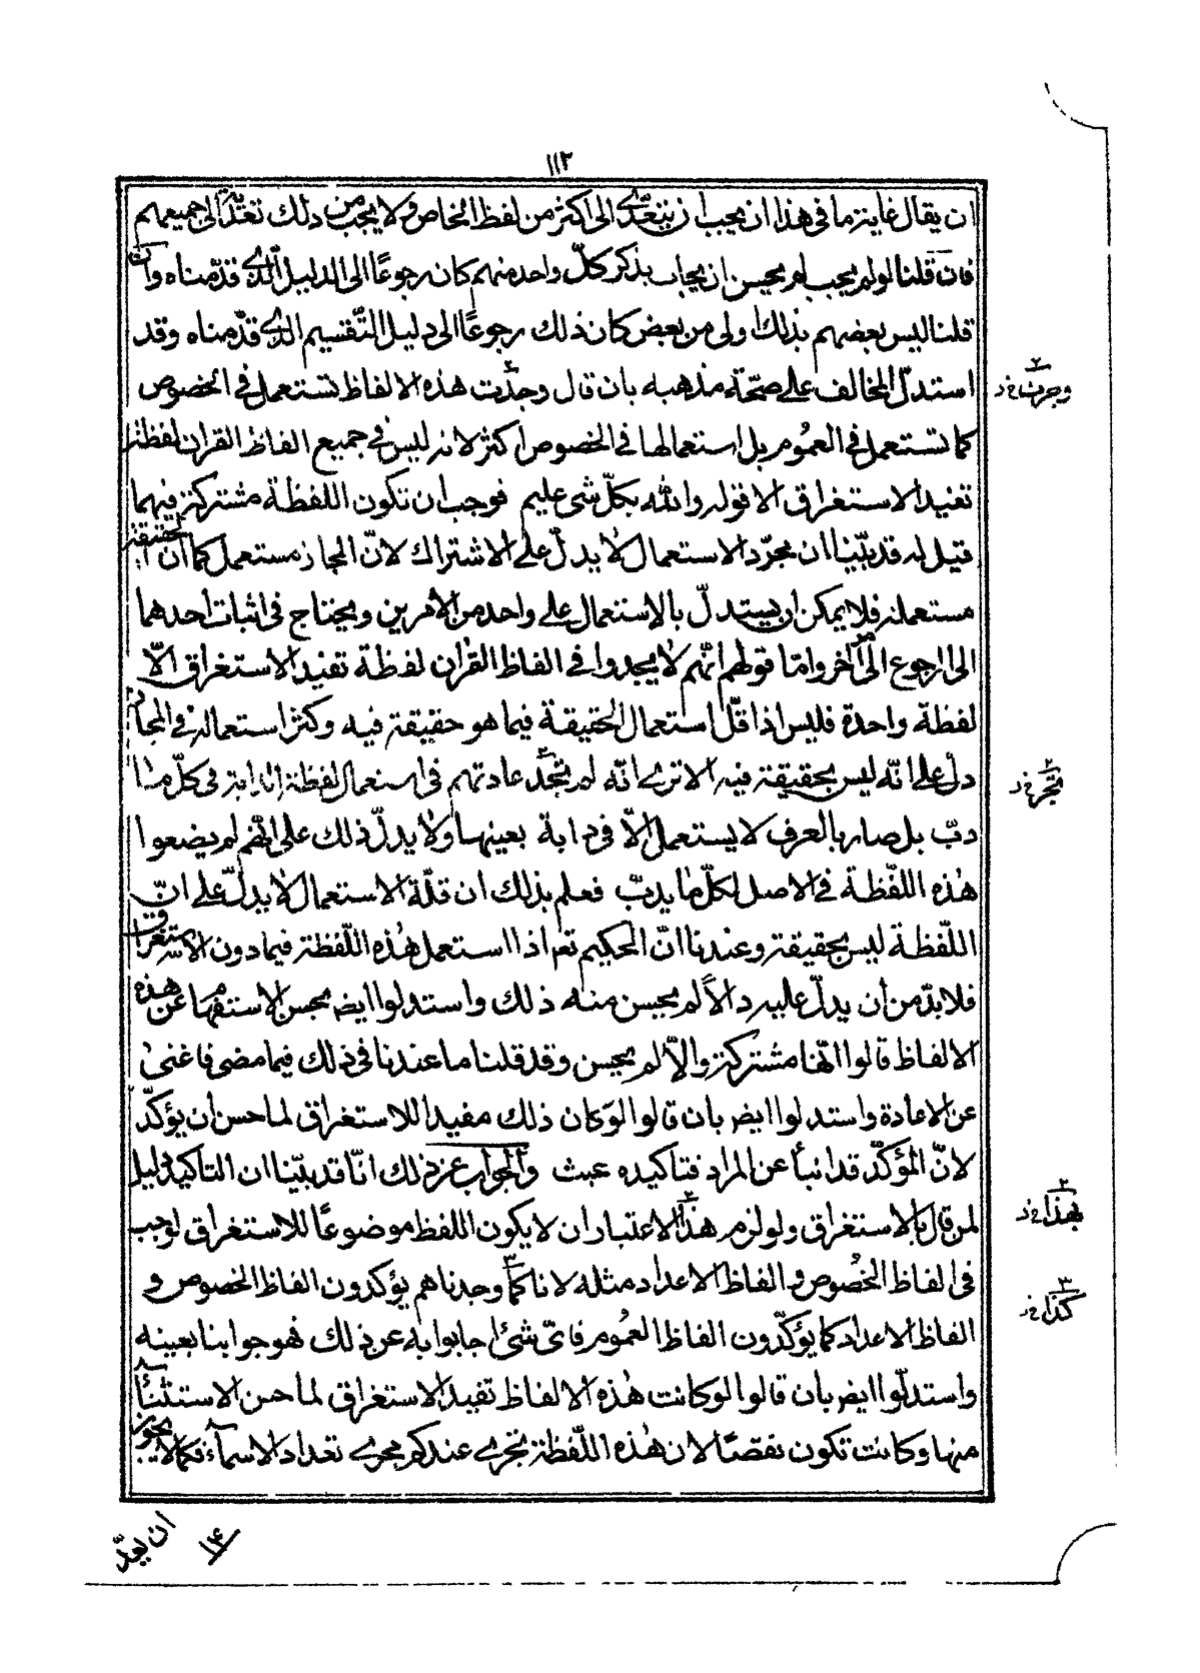 ١١٢
ان يقال غاية ما فى هذا ان يجب ان يتعدّى الى اكثر من لفظ الخاص ولا يجب من ذلك تعدّ الى جميعهم
فان قلنا لو لم يجب لم يحسن ان يجاب بذكر كلّ واحد منهم كان رجوعًا الى الدليل الّذى قدّمناه وان
قلنا ليس بعضهم بذلك اولى من بعض كان ذلك رجوعًا الى دليل التّقسيم الّذى قدّمناه وقد
استدلّ المخالف على صحّة مذهبه بان قال وجدت هذه الالفاظ تستعمل فى الخصوص
كما تستعمل فى العموم بل استعمالها فى الخصوص اكثر لانه ليس فى جميع الفاظ القران لفظة
تفيد الاستغراق الا قوله والله بكلّ شى عليم فوجب ان تكون اللفظة مشتركة فيهما
قيل له قد بيّنا ان مجرّد الاستعمال لا يدلّ على الاشتراك لانّ المجاز مستعمل كما ان الحقيقة
مستعملة فلا يمكن ان يستدلّ بالاستعمال على واحد من الامرين ويحتاج فى اثبات احدهما
الى الرجوع الى امر اخر وامّا قولهم انّهم لا يجدوا فى الفاظ القران لفظة تفيد الاستغراق الّا
لفظة واحدة فليس اذا قلّ استعمال الحقيقة فيما هو حقيقة فيه وكثر استعماله فى المجاز
دل على انّه ليس بحقيقة فيه الا ترى انّه لم تجد عادتهم فى استعمال لفظة الدابة فى كلّ ما
دبّ بل صار بالعرف لا يستعمل الّا فى دابة بعينها ولا يدلّ ذلك على انّهم لم يضعوا
هذه اللّفظة فى الاصل لكلّ ما يدبّ فعلم بذلك ان قلّة الاستعمال لا يدلّ على انّ
اللّفظة ليس بحقيقة وعندنا انّ الحكيم تع اذا استعمل هذه اللّفظة فيما دون الاستغراق
فلا بدّ من ان يدلّ عليه والّا لم يحسن منه ذلك واستدلوا ايض بحسن الاستفهام عن هذه
الالفاظ قالوا انّها مشتركة والّا لم يحسن وقد قلنا ما عندنا فى ذلك فيما مضى فاغنى
عن الاعادة واستدلوا ايض بان قالوا لو كان ذلك مفيدا للاستغراق لما حسن ان يؤكّد
لانّ المؤكّد قد انبأ عن المراد فتاكيده عبث والجواب عن ذلك انّا قد بيّنا ان التاكيد دليل
لمن قال بالاستغراق ولو لزم هذا الاعتبار ان لا يكون اللفظ موضوعًا للاستغراق لوجب
فى الفاظ الخصوص والفاظ الاعداد مثله لانا كما وجدناهم يؤكدون الفاظ الخصوص و
الفاظ الاعداد كما يؤكّدون الفاظ العموم فاىّ شئ اجابوا به عن ذلك فهو جوابنا بعينه
واستدلّوا ايض بان قالوا لو كانت هذه الالفاظ تفيد الاستغراق لما حسن الاستثناء
منها وكانت تكون نقضًا لان هذه اللّفظة تجرى عندكم مجرى تعداد الاسماء فكما لا يجوز
وجدنا خ د
تجر خ د
بهذا خ د
كذا خ د
ان يعدّ
١٤